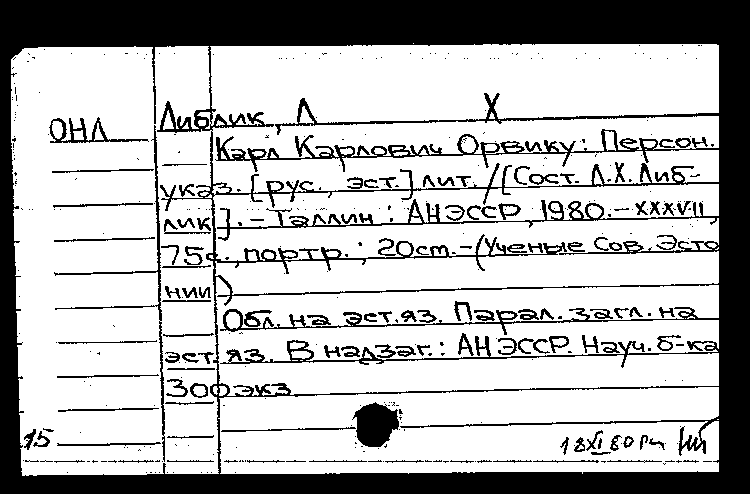 ОНЛ
Либлик, Л Х
Карл Карлович Орвику: Персон.
указ. [рус., эст.] лит. / [Сост. Л.Х. Либ-
лик]. - Таллин : АНЭССР, 1980. - XXXVII,
75с., портр. ; 20cm. - (Ученые Сов. Эсто
нии)
Обл. на эст. яз. Парал. загл. на
эст. яз. В надзаг.: АН ЭССР. Науч. б-ка
300 экз.
15
18 XI 80